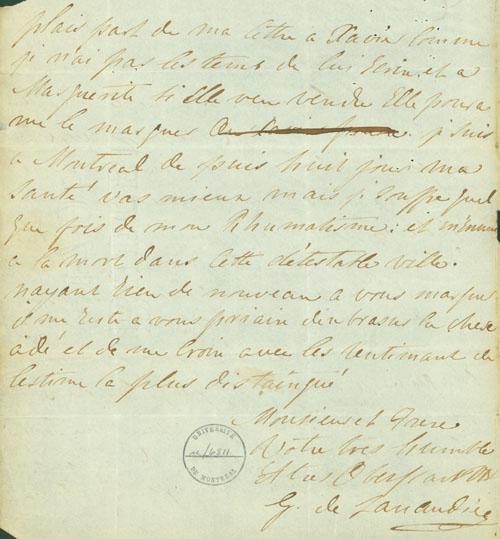 plais part de ma lettre a Xavier comme
je n'ai pas les tems de lui Ecrire et a
Marguerite si Elle veu vendre Elle poura
me le marquer je suis
a Montreal de puis huit jours ma
santé vas mieux mais je souffre quel
que fois de mon Rhumatisme: et m'ennui
a la mort dans cette détestable ville.
nayant Rien de nouveau a vous marquer
il me Reste a vous priair d'enbrasser la chere
adé et de me Croire avec les sentimant de
lestime la plus distaingué
Monsieur et frere
Votre tres humble
et tres Obeissant
G. de Lanaudière
UNIVERSITÉ
DE MONTRÉAL